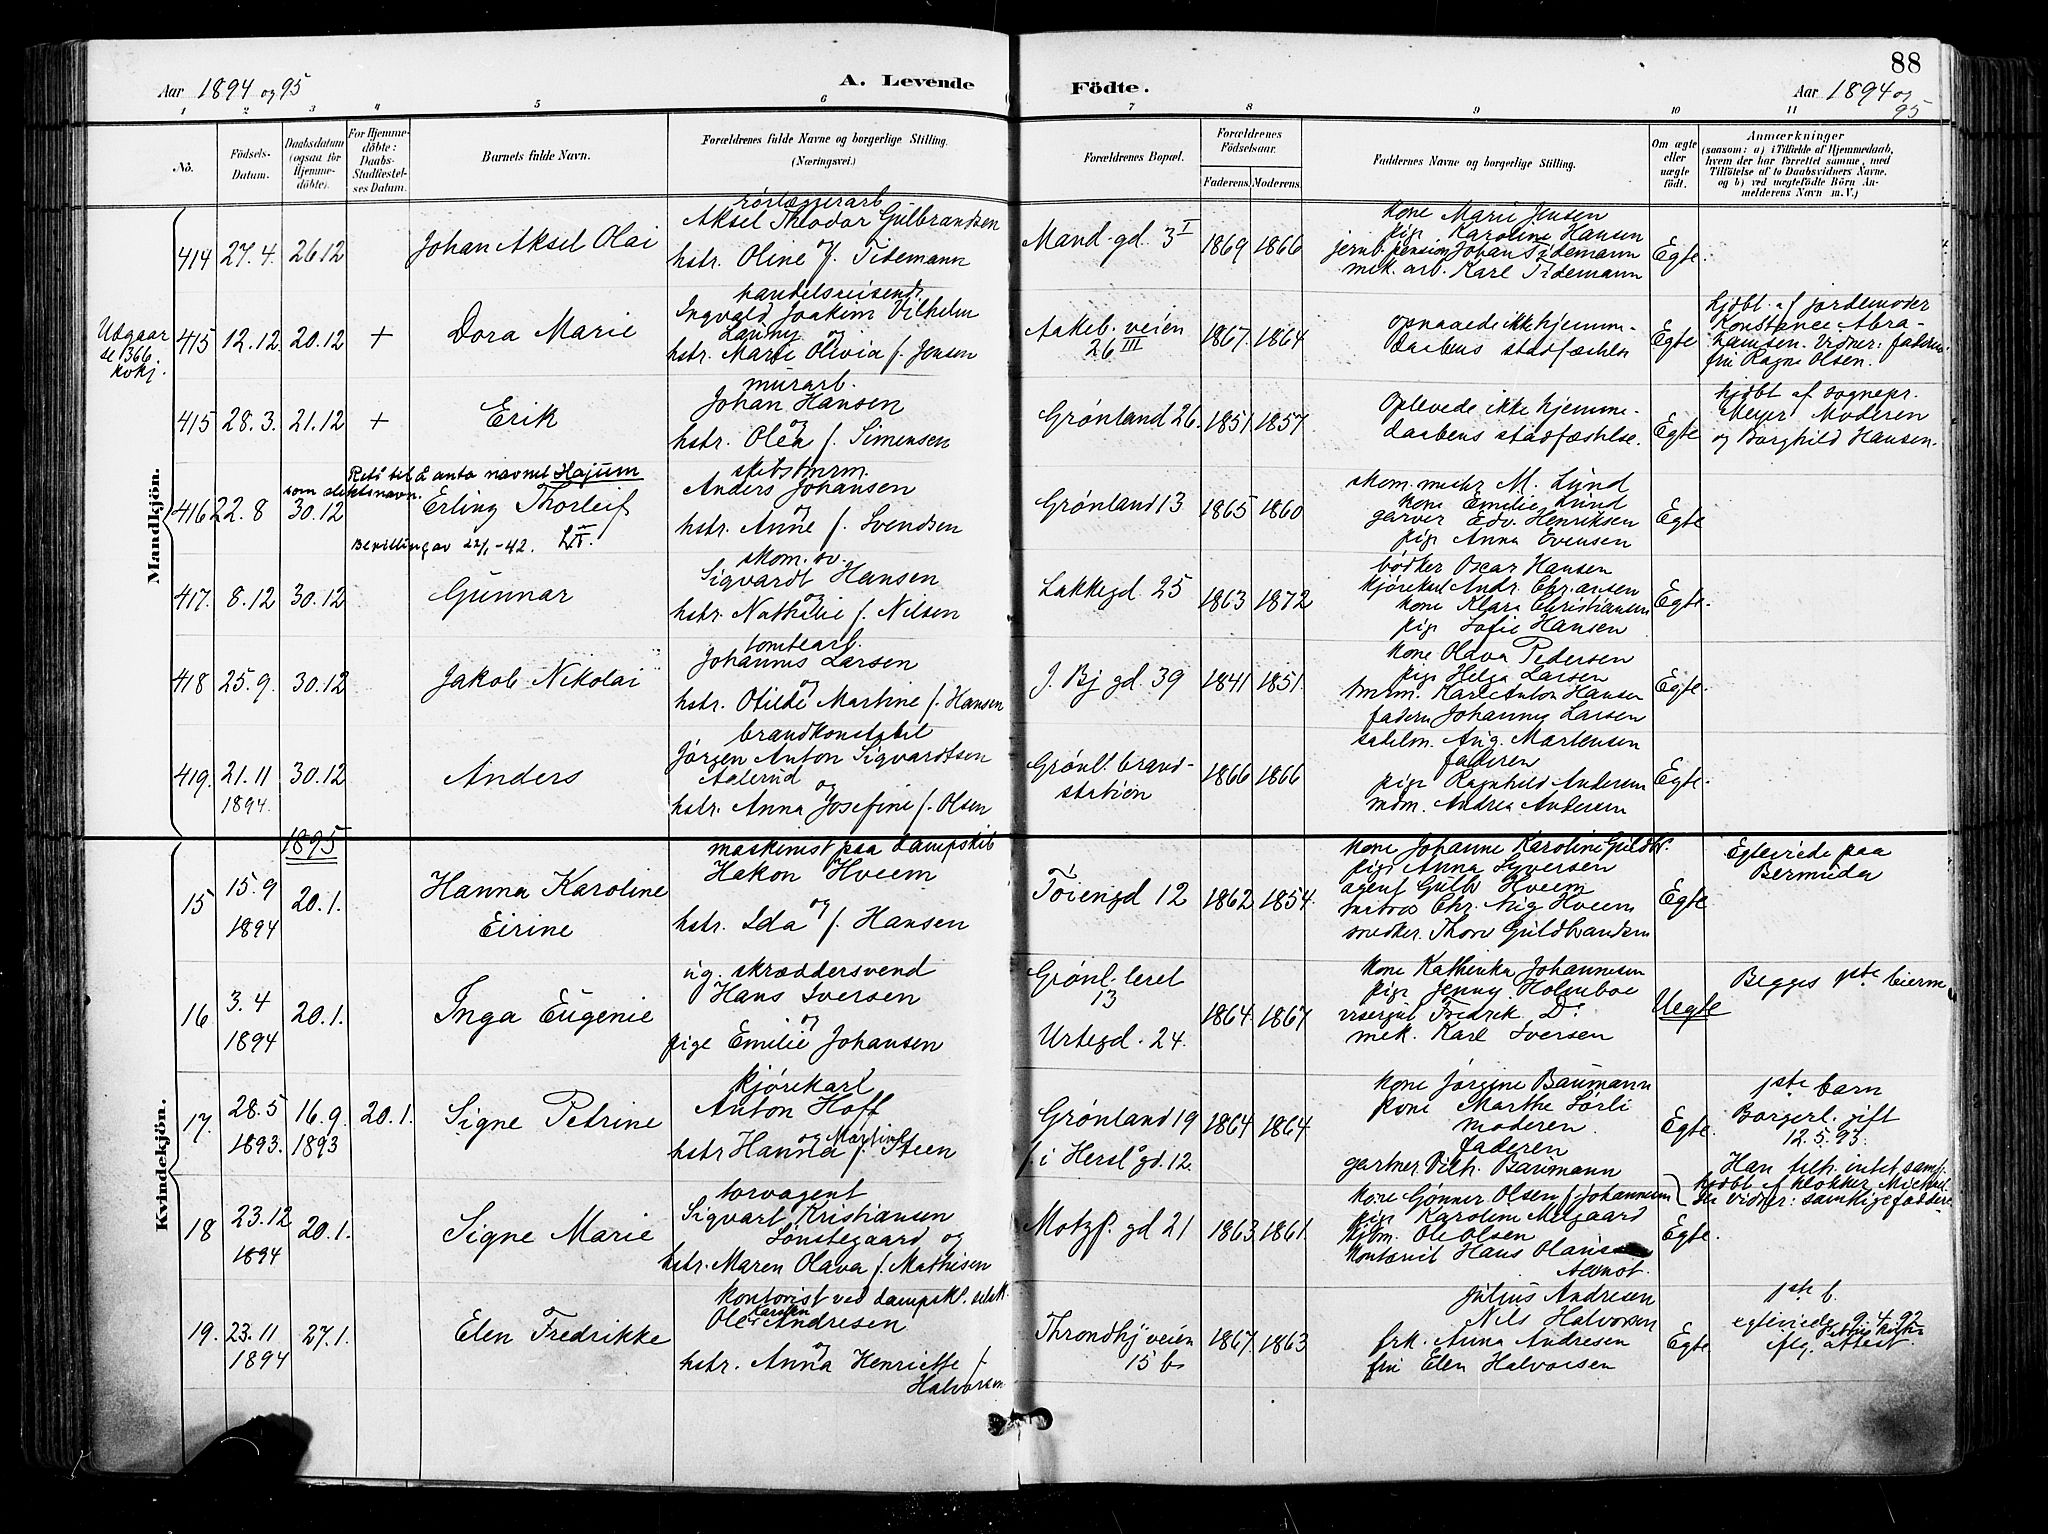 88
Aar 1894 og 95
A. Levende
Födte.
Aar 1894 og 95
1 2 3 4 5 6 7 8 9 10 11
No.
Födsels-Datum.
Daabsdatum (ogsaa for Hjemmedöbte).
For Hjemmedöbte: Daabs-Stadfæstelses Datum.
Barnets fulde Navn.
Forældrenes fulde Navne og borgerlige Stilling. (Næringsvei.)
Forældrenes Bopæl.
Forældrenes Födselsaar.
Faderens. Moderens.
Faddernes Navne og borgerlige Stilling.
Om ægte eller uægte födt.
Anmærkninger
(saasom: a) i Tilfælde af Hjemmedaab, hvem der har forrettet samme, med Tilföielse af to Daabsvidners Navne. og b) ved uægtefödte Börn Anmelderens Navn m. V.)
Mandkjön.
414 27.4. 26.12 Johan Aksel Olai
rørlæggerarb.
Aksel Theodor Gulbrandsen
og
hstr. Oline f. Tidemann
Mand. gd. 3 I 1869 1866
kone Marie Jensen
pige Karoline Hansen
jernb. pension Johan Tidemann
mek. arb. Karl Tidemann
Egte.
Udgaar
se 1366
kvkj.
415 12.12 20.12 + Dora Marie
handelsreisend.
Ingvald Joakim Vilhelm
og
hstr. Marie Olivia f. Jensen
Aakeb. veien
26 III
1867. 1864
opnaaede ikke hjemme-
daabens stadfæstelse
Egte
hjdbt. af jordemoder
Konstance Abra-
hamsen. Vidner: faderen
fru Ragna Olsen.
415 28.3. 21.12 + Erik
murarb.
Johan Hansen
og
hstr. Olea f. Simensen
Grønland 26. 1851 1857
Oplevede ikke hjemme-
daabens stadfæstelse.
Egte
hjdbt af sognepr.
Meyer Moderen
og Borghild Hansen.
Ret til å anta navnet Hajum
som slektsnavn.
416 22.8 30.12 Erling Thorleif
Bevilling av 22/1-42.
skibstmrm.
Anders Johansen
og
hstr. Anne f. Svendsen
Grønland 13 1865 1860
skom. mester M. Lund
kone Emilie Lund
garver Edv. Henriksen
pige Anna Evensen
Egte
417. 8.12 30.12 Gunnar
skom. sv.
Sigvardt Hansen
og
hstr. Nathalie f. Nilsen
Lakkegd. 25 1863 1872
bødker Oscar Hansen
kjørekarl Andr. Chr.ansen
kone Klara Christiansen
pige Sofie Hansen
Egte.
418 25.9. 30.12 Jakob Nikolai
tomtearb.
Johannes Larsen
og
hstr. Otilde Martine f. Hansen
J. Bj gd. 39 1841 1851.
kone Olava Pedersen
pige Helga Larsen
tmrm. Karl Anton Hansen
faderen Johannes Larsen
Egte.
419. 21.11 30.12 Anders
1894.
brandkonstabel
Jørgen Anton Sigvardtsen
Aalerud
og
hstr. Anna Josefine f. Olsen
Grønl. brand-
station
1866 1866
sadelm. Aug. Martensen
faderen
pige Ragnhild Andersen
mdm. Andrea Andersen
Egte.
Kvindekjön.
1895
15 15.9 1894 20.1. Hanna Karoline
Eirine
maskinist paa dampskib
Hakon Hveem
og
hstr. Ida f. Hansen
Töiengd 12 1862 1854.
kone Johanne Karoline Guldbr.
pige Anna Syversen
agent Gulb Hveem
Chr. Aug Hveem
snedker. Thorv Guldbrandsen
Egte.
Egteviede paa
Bermuda
16 3.4 1894 20.1. Inga Eugenie
ug. skræddersvend
Hans Iversen
og
pige Emilie Johansen
Grønl. leret
13
Urtegd. 24.
1864. 1867
kone Kathinka Johannesen
pige Jenny Holmboe
visergut Fredrik Do
mek. Karl Iversen
Uegte
Begges 1ste leierm
17. 28.5 1893. 16.9 1893 20.1. Signe Petrine
kjørekarl
Anton Hoff
og
hstr Hanna Martine f. Steen
Grønland 19
f. i Hersl. gd. 12.
1864 1864
kone Jørgine Baumann
kone Marthe Sörli
moderen
faderen
gartner Vilh. Baumann
Egte.
1ste barn
Borgerl. gift
12.5.93.
Han tilh. intet samf.
hjdbt af klokker Michel-
sen vidner: samtlige faddere
18 23.12 1894 20.1. Signe Marie
torvagent
Sigvart Kristiansen
Lönstegaard og
hstr. Maren Olava f. Mathisen
Motzf. gd 21 1863. 1861.
kone Gønner Olsen f. Johannesen
pige Karoline Melgaard
kjbm. Ole Olsen
kontorist Hans Olaus
Aamot.
Egte.
19. 23.11 1894 27.1. Elen Fredrikke
kontorist ved dampsk. selsk.
Ole Karsten Andresen
og
hstr. Anna Henriette f.
Halvorsen
Throndhj veien
15 b
1867. 1863
Julius Andresen
Nils Halvorsen
frk. Anna Andresen
fru Elen Halvorsen
Egte
1ste b.
egteviede 9.4.92
iflg. attest.